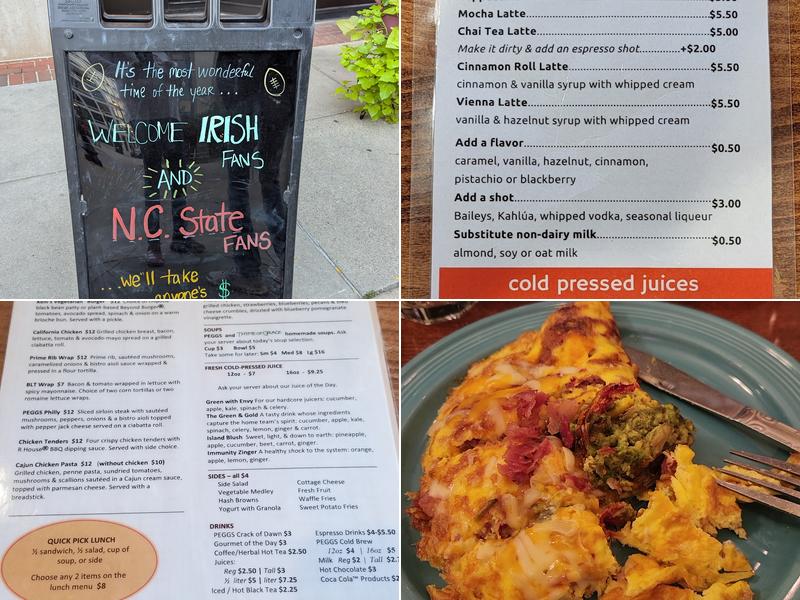 It's the most wonderful
time of the year...
WELCOME IRISH
FANS
AND
N.C. State
FANS
...we'll take
anyone's $
Mocha Latte $5.50
Chai Tea Latte $5.00
Make it dirty & add an espresso shot +$2.00
Cinnamon Roll Latte $5.50
cinnamon & vanilla syrup with whipped cream
Vienna Latte $5.50
vanilla & hazelnut syrup with whipped cream
Add a flavor $0.50
caramel, vanilla, hazelnut, cinnamon,
pistachio or blackberry
Add a shot $3.00
Baileys, Kahlúa, whipped vodka, seasonal liqueur
Substitute non-dairy milk $0.50
almond, soy or oat milk
cold pressed juices
black bean patty or plant-based Beyond Burger®,
tomatoes, avocado spread, spinach & onion on a warm
brioche bun. Served with a pickle.
California Chicken $12 Grilled chicken breast, bacon,
lettuce, tomato & avocado mayo spread on a grilled
ciabatta roll.
Prime Rib Wrap $12 Prime rib, sautéed mushrooms,
caramelized onions & bistro aioli sauce wrapped &
pressed in a flour tortilla.
BLT Wrap $7 Bacon & tomato wrapped in lettuce with
spicy mayonnaise. Choice of two corn tortillas or two
romaine lettuce wraps.
PEGGS Philly $12 Sliced sirloin steak with sautéed
mushrooms, peppers, onions & a bistro aioli topped
with pepper jack cheese served on a ciabatta roll.
Chicken Tenders $12 Four crispy chicken tenders with
R House® BBQ dipping sauce. Served with side choice.
Cajun Chicken Pasta $12 (without chicken $10)
Grilled chicken, penne pasta, sundried tomatoes,
mushrooms & scallions sautéed in a Cajun cream sauce,
topped with parmesan cheese. Served with a
breadstick.
QUICK PICK LUNCH
½ sandwich, ½ salad, cup of
soup, or side
Choose any 2 items on the
lunch menu $8
grilled chicken, strawberries, blueberries, pecans & bleu
cheese crumbles, drizzled with blueberry pomegranate
vinaigrette.
SOUPS
PEGGS and homemade soups. Ask
your server about today's soup selection.
Cup $3 Bowl $5
Take some for later: Sm $4 Med $8 Lg $16
FRESH COLD-PRESSED JUICE
12oz - $7 16oz - $9.25
Ask your server about our Juice of the Day.
Green with Envy For our hardcore juicers: cucumber,
apple, kale, spinach & celery.
The Green & Gold A tasty drink whose ingredients
capture the home team's spirit: cucumber, apple, kale,
spinach, celery, lemon, ginger & carrot.
Island Blush Sweet, light, & down to earth: pineapple,
apple, cucumber, beet, carrot, ginger.
Immunity Zinger A healthy shock to the system: orange,
apple, lemon, ginger.
SIDES – all $4
Side Salad Cottage Cheese
Vegetable Medley Fresh Fruit
Hash Browns Waffle Fries
Yogurt with Granola Sweet Potato Fries
DRINKS
PEGGS Crack of Dawn $3 Espresso Drinks $4-$5.50
Gourmet of the Day $3 PEGGS Cold Brew
Coffee/Herbal Hot Tea $2.50 12oz $4 | 16oz $5
Juices: Milk Reg $2 | Tall
Reg $2.50 | Tall $3 Hot Chocolate $3
½ liter $5 | liter $7.25 Coca Cola™ Products
Iced / Hot Black Tea $2.25